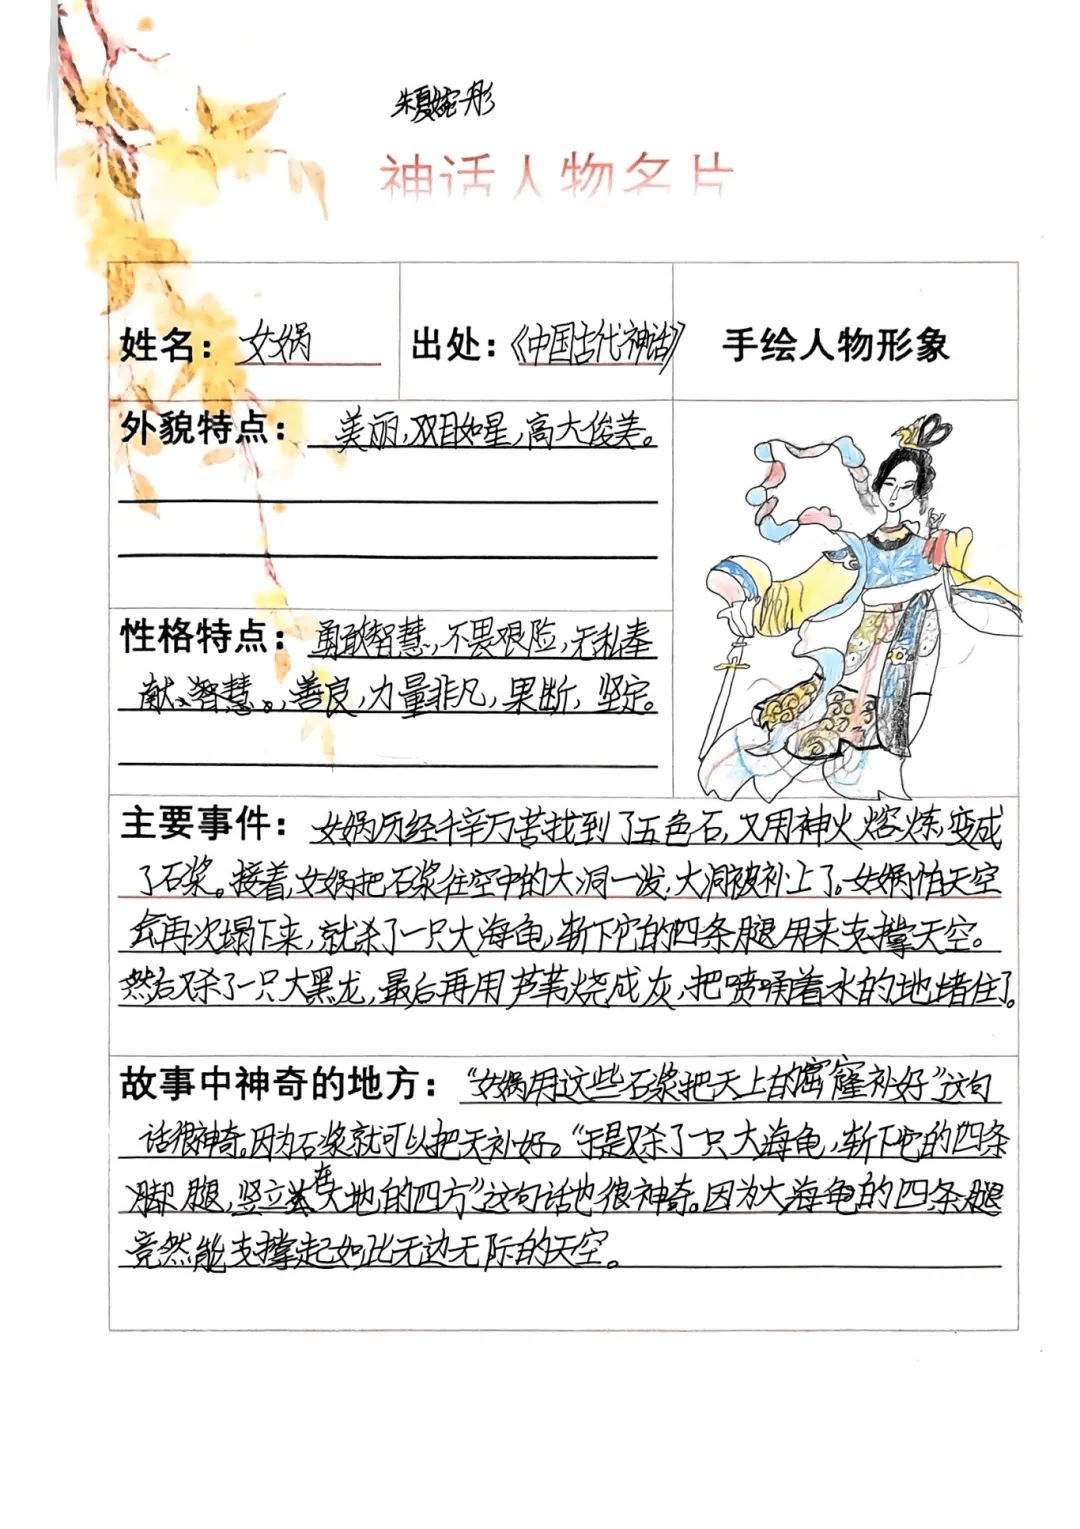 朱夏婉彤
神话人物名片
姓名：女娲
出处：《中国古代神话》
手绘人物形象
外貌特点：美丽，双目如星，高大俊美。
性格特点：勇敢智慧，不畏艰险，无私奉
献、智慧。，善良，力量非凡，果断，坚定。
主要事件：女娲历经千辛万苦找到了五色石，又用神火熔炼，变成
了石浆。接着，女娲把石浆往空中的大洞一泼，大洞被补上了。女娲怕天空
会再次塌下来，就杀了一只大海龟，斩下它的四条腿用来支撑天空。
然后又杀了一只大黑龙，最后再用芦苇烧成灰，把喷涌着水的地堵住了。
故事中神奇的地方：“女娲用这些石浆把天上的窟窿补好”这句
话很神奇。因为石浆就可以把天补好。“于是又杀了一只大海龟，斩下它的四条
脚腿，竖立在大地的四方”这句话也很神奇。因为大海龟的四条腿
竟然能支撑起如此无边无际的天空。